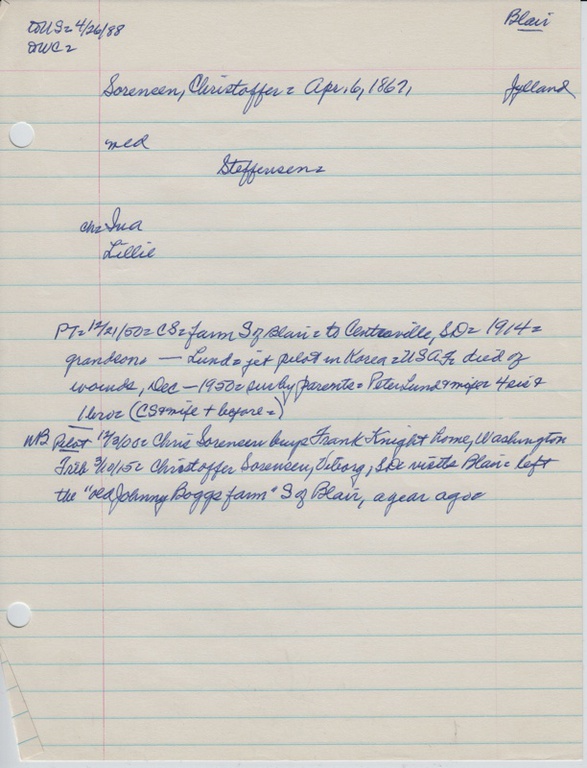 toUS = 4/26/88
DWC =
Blair
Sorensen, Christoffer = Apr, 6, 1867,
Jylland
med
Steffensen =
ch = Ina
Lillie
PT = 12/21/50 = CS = farm S of Blair = to Centerville, SD = 1914 =
grandsons — Lund = jet pilot in Korea = USAF = died of
wounds, Dec – 1950 = sur by parents = Peter Lund & wife = 4 sis &
1 bro = (CS & wife + before =)
NB Pilot 12/3/00 = Chris Sorensen buys Frank Knight home, Washington
Trib 9/10/15 = Christoffer Sorensen, Viborg, SD = visits Blair = left
the "old Johnny Boggs farm" S of Blair, a year ago =